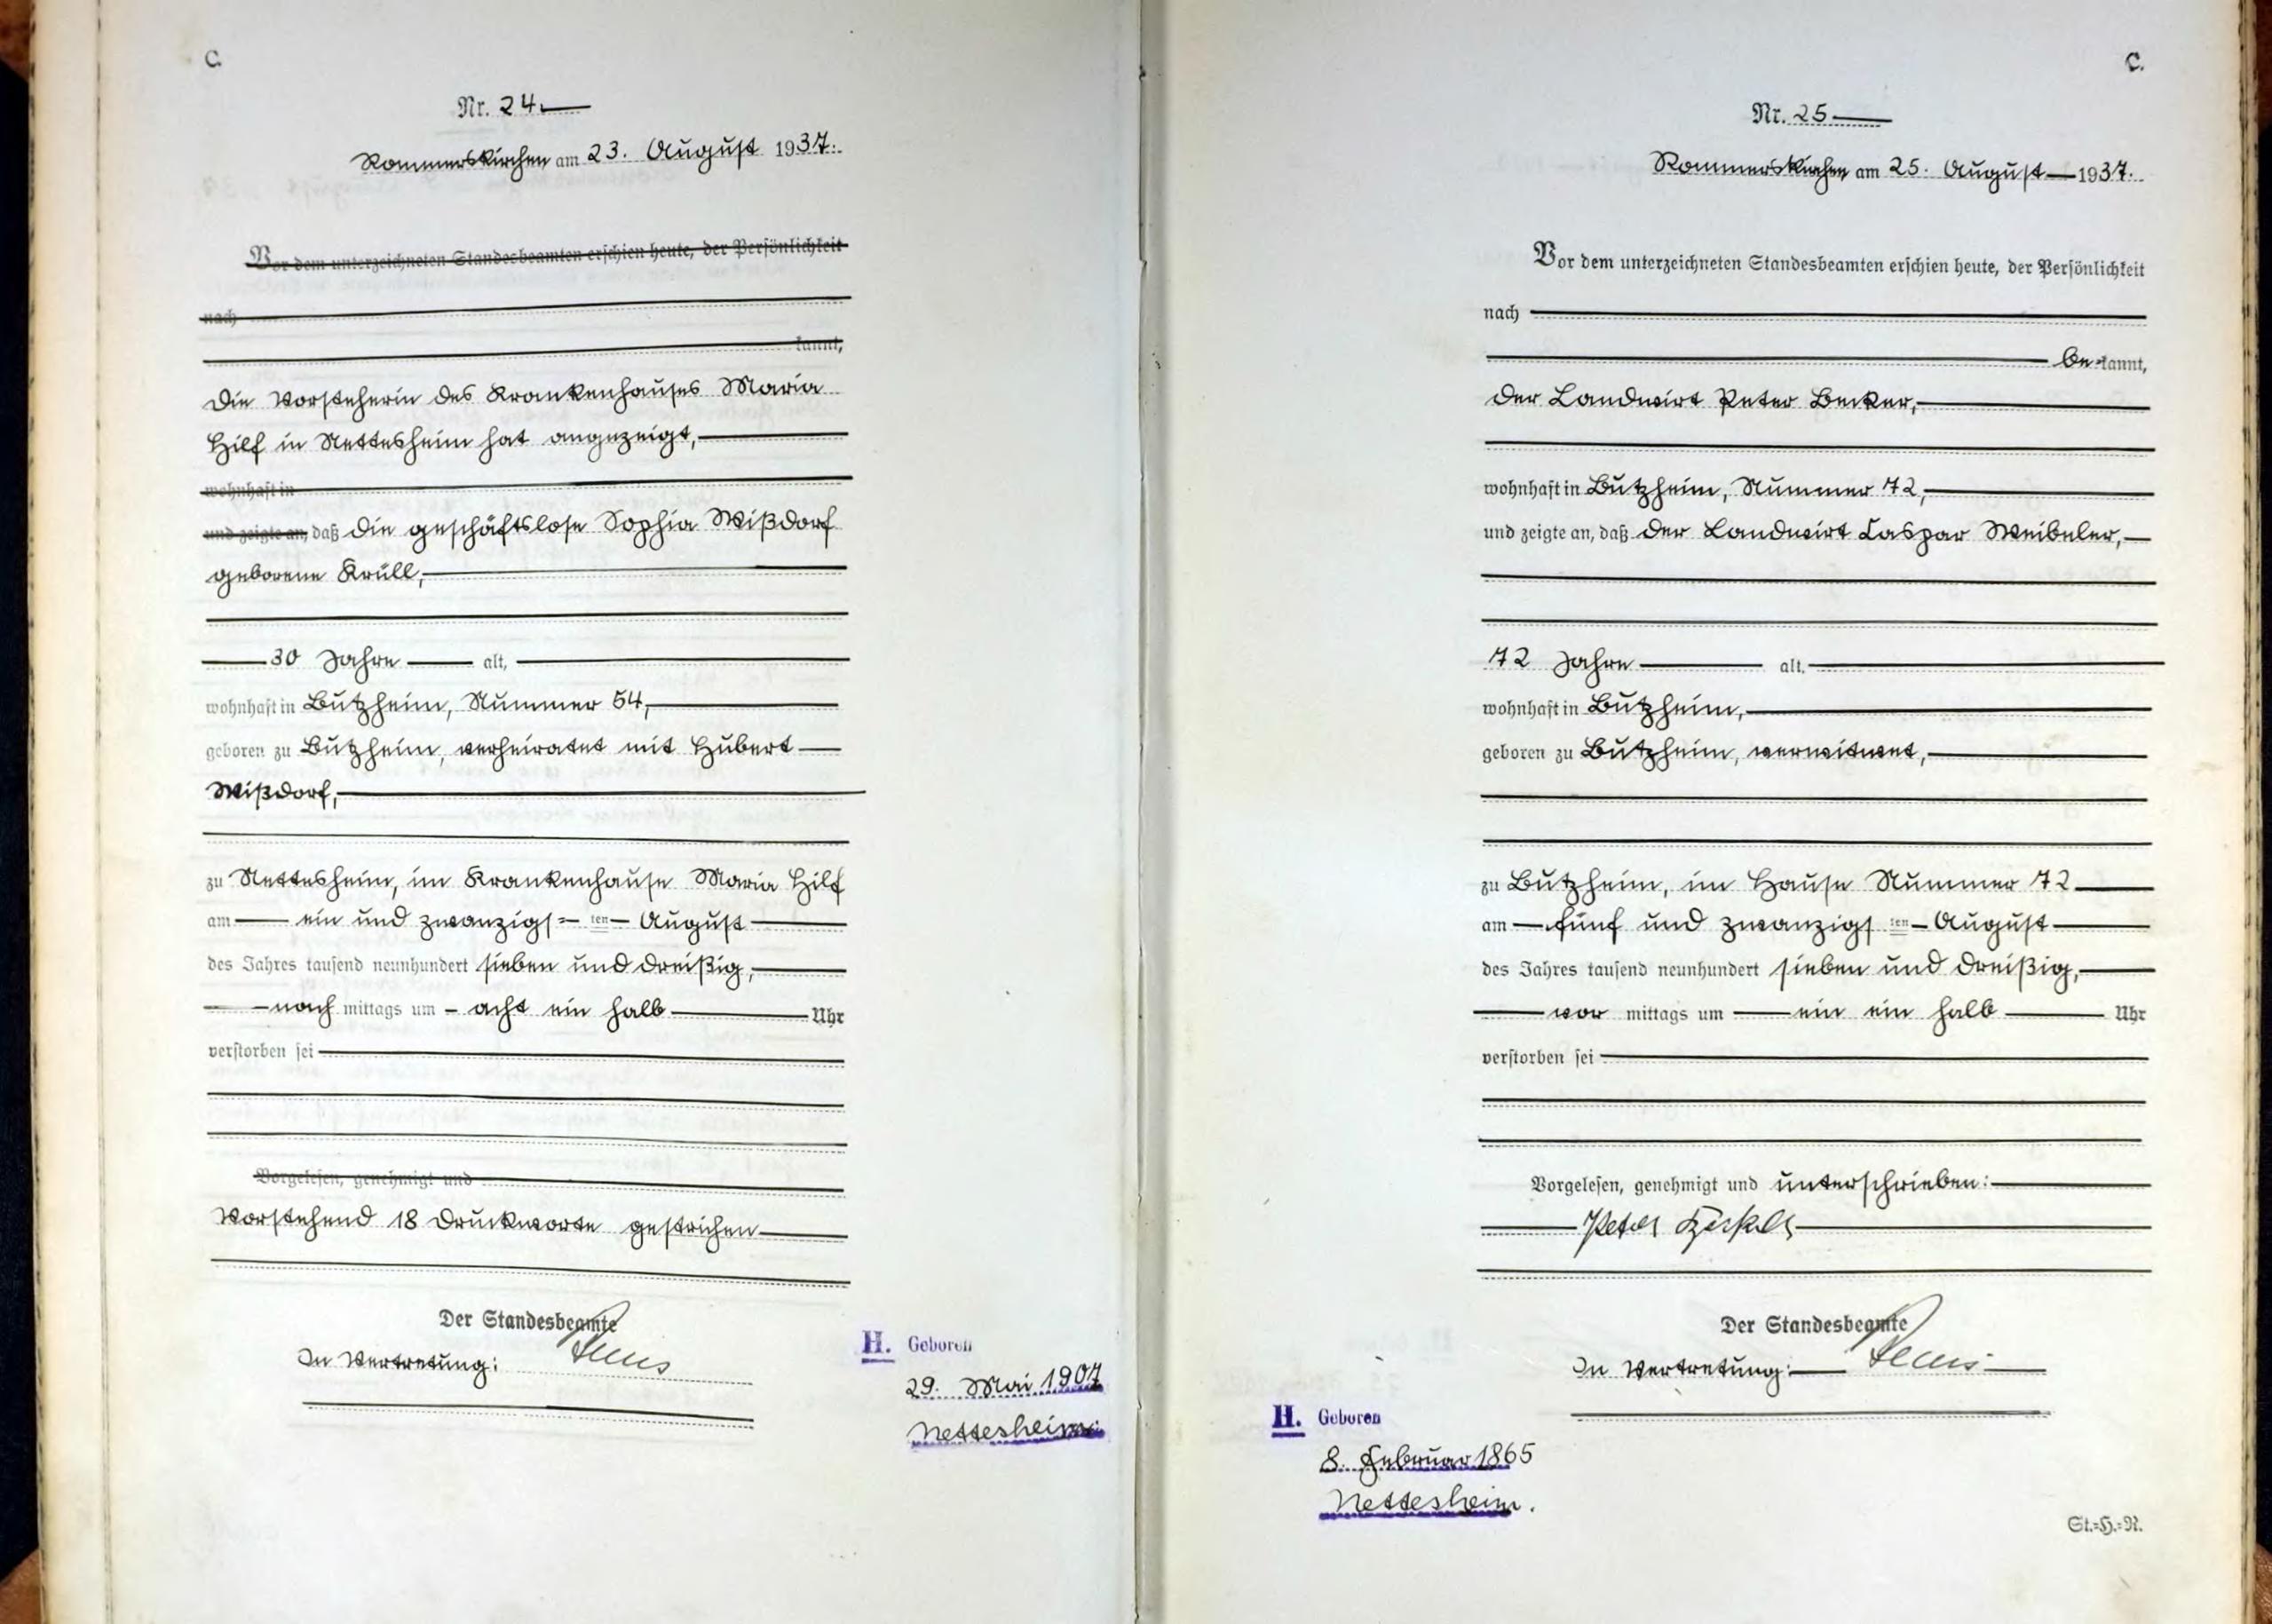 C.
Nr. 24
Rommerskirchen am 23. August 1937.
Vor dem unterzeichneten Standesbeamten erschien heute, der Persönlichkeit
nach
kannt,
die Vorsteherin des Krankenhauses Maria
Hilf in Nettesheim hat angezeigt,
wohnhaft in
und zeigte an, daß die geschäftslose Sophia Wißdorf
geborene Krüll,
30 Jahre alt,
wohnhaft in Butzheim, Nummer 54,
geboren zu Butzheim, verheiratet mit Hubert
Wißdorf,
zu Nettesheim, im Krankenhause Maria Hilf
am ein und zwanzigs=ten August
des Jahres tausend neunhundert sieben und dreißig,
nach mittags um acht ein halb Uhr
verstorben sei
Vorgelesen, genehmigt und
Vorstehend 18 Druckworte gestrichen
Der Standesbeamte
In Vertretung:
H. Geboren
29. Mai 1907
Nettesheim
C.
Nr. 25
Rommerskirchen am 25. August 1937.
Vor dem unterzeichneten Standesbeamten erschien heute, der Persönlichkeit
nach
be=kannt,
der Landwirt Peter Becker,
wohnhaft in Butzheim, Nummer 72,
und zeigte an, daß der Landwirt Caspar Weibeler,
72 Jahre alt,
wohnhaft in Butzheim,
geboren zu Butzheim, verwitwet,
zu Butzheim, im Hause Nummer 72
am fünf und zwanzigs ten August
des Jahres tausend neunhundert sieben und dreißig,
vor mittags um ein ein halb Uhr
verstorben sei
Vorgelesen, genehmigt und unterschrieben:
Peter
Der Standesbeamte
In Vertretung:
H. Geboren
8. Februar 1865
Nettesheim.
St.=H.=R.